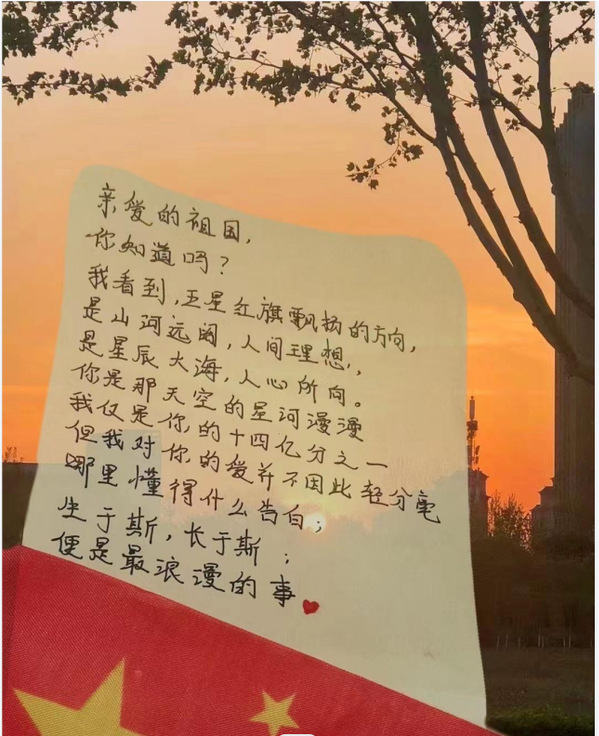 亲爱的祖国,
你知道吗?
我看到,五星红旗飘扬的方向,
是山河远阔,人间理想,,
是星辰大海,人心所向。
你是那天空的星河漫漫
我仅是你的十四亿分之一
但我对你的爱并不因此轻分毫
哪里懂得什么告白;
生于斯,长于斯;
便是最浪漫的事